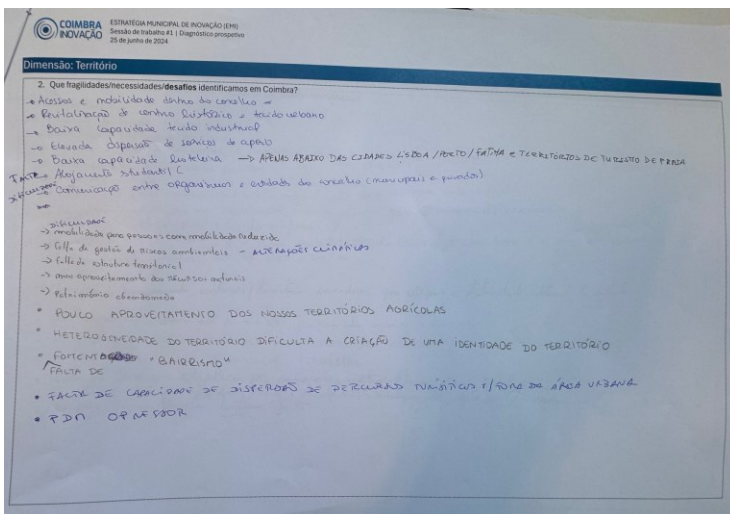 COIMBRA INOVAÇÃO
ESTRATÉGIA MUNICIPAL DE INOVAÇÃO (EMI)
Sessão de trabalho #1 | Diagnóstico prospetivo
25 de junho de 2024
Dimensão: Território
2. Que fragilidades/necessidades/desafios identificamos em Coimbra?
→ Acessos e mobilidade dentro do concelho
→ Revitalização do centro histórico e tecido urbano
→ Baixa capacidade tecido industrial
→ Elevada dispersão de serviços de apoio
→ Baixa capacidade hoteleira → APENAS ABAIXO DAS CIDADES LISBOA / PORTO / FATIMA e TERRITÓRIOS DE TURISTO DE PRAIA
FALTA → Alojamento studantil
DIFICULDADE → Comunicação entre organismos e entidades do concelho (municipais e privados)
DIFICULDADE
→ mobilidade para pessoas com mobilidade reduzida
→ falta de gestão de riscos ambientais - ALTERAÇÕES CLIMÁTICAS
→ falta de estrutura territorial
→ aproveitamento dos recursos naturais
→ Património abandonado
• POUCO APROVEITAMENTO DOS NOSSOS TERRITÓRIOS AGRÍCOLAS
• HETEROGENEIDADE DO TERRITÓRIO DIFICULTA A CRIAÇÃO DE UMA IDENTIDADE DO TERRITÓRIO
• FOMENTO "BAIRRISMO"
FALTA DE
• FALTA DE CAPACIDADE DE DISPERSÃO DE PERCURSOS TURÍSTICOS P/ FORA DA ÁREA URBANA
• PDM OPRESSOR